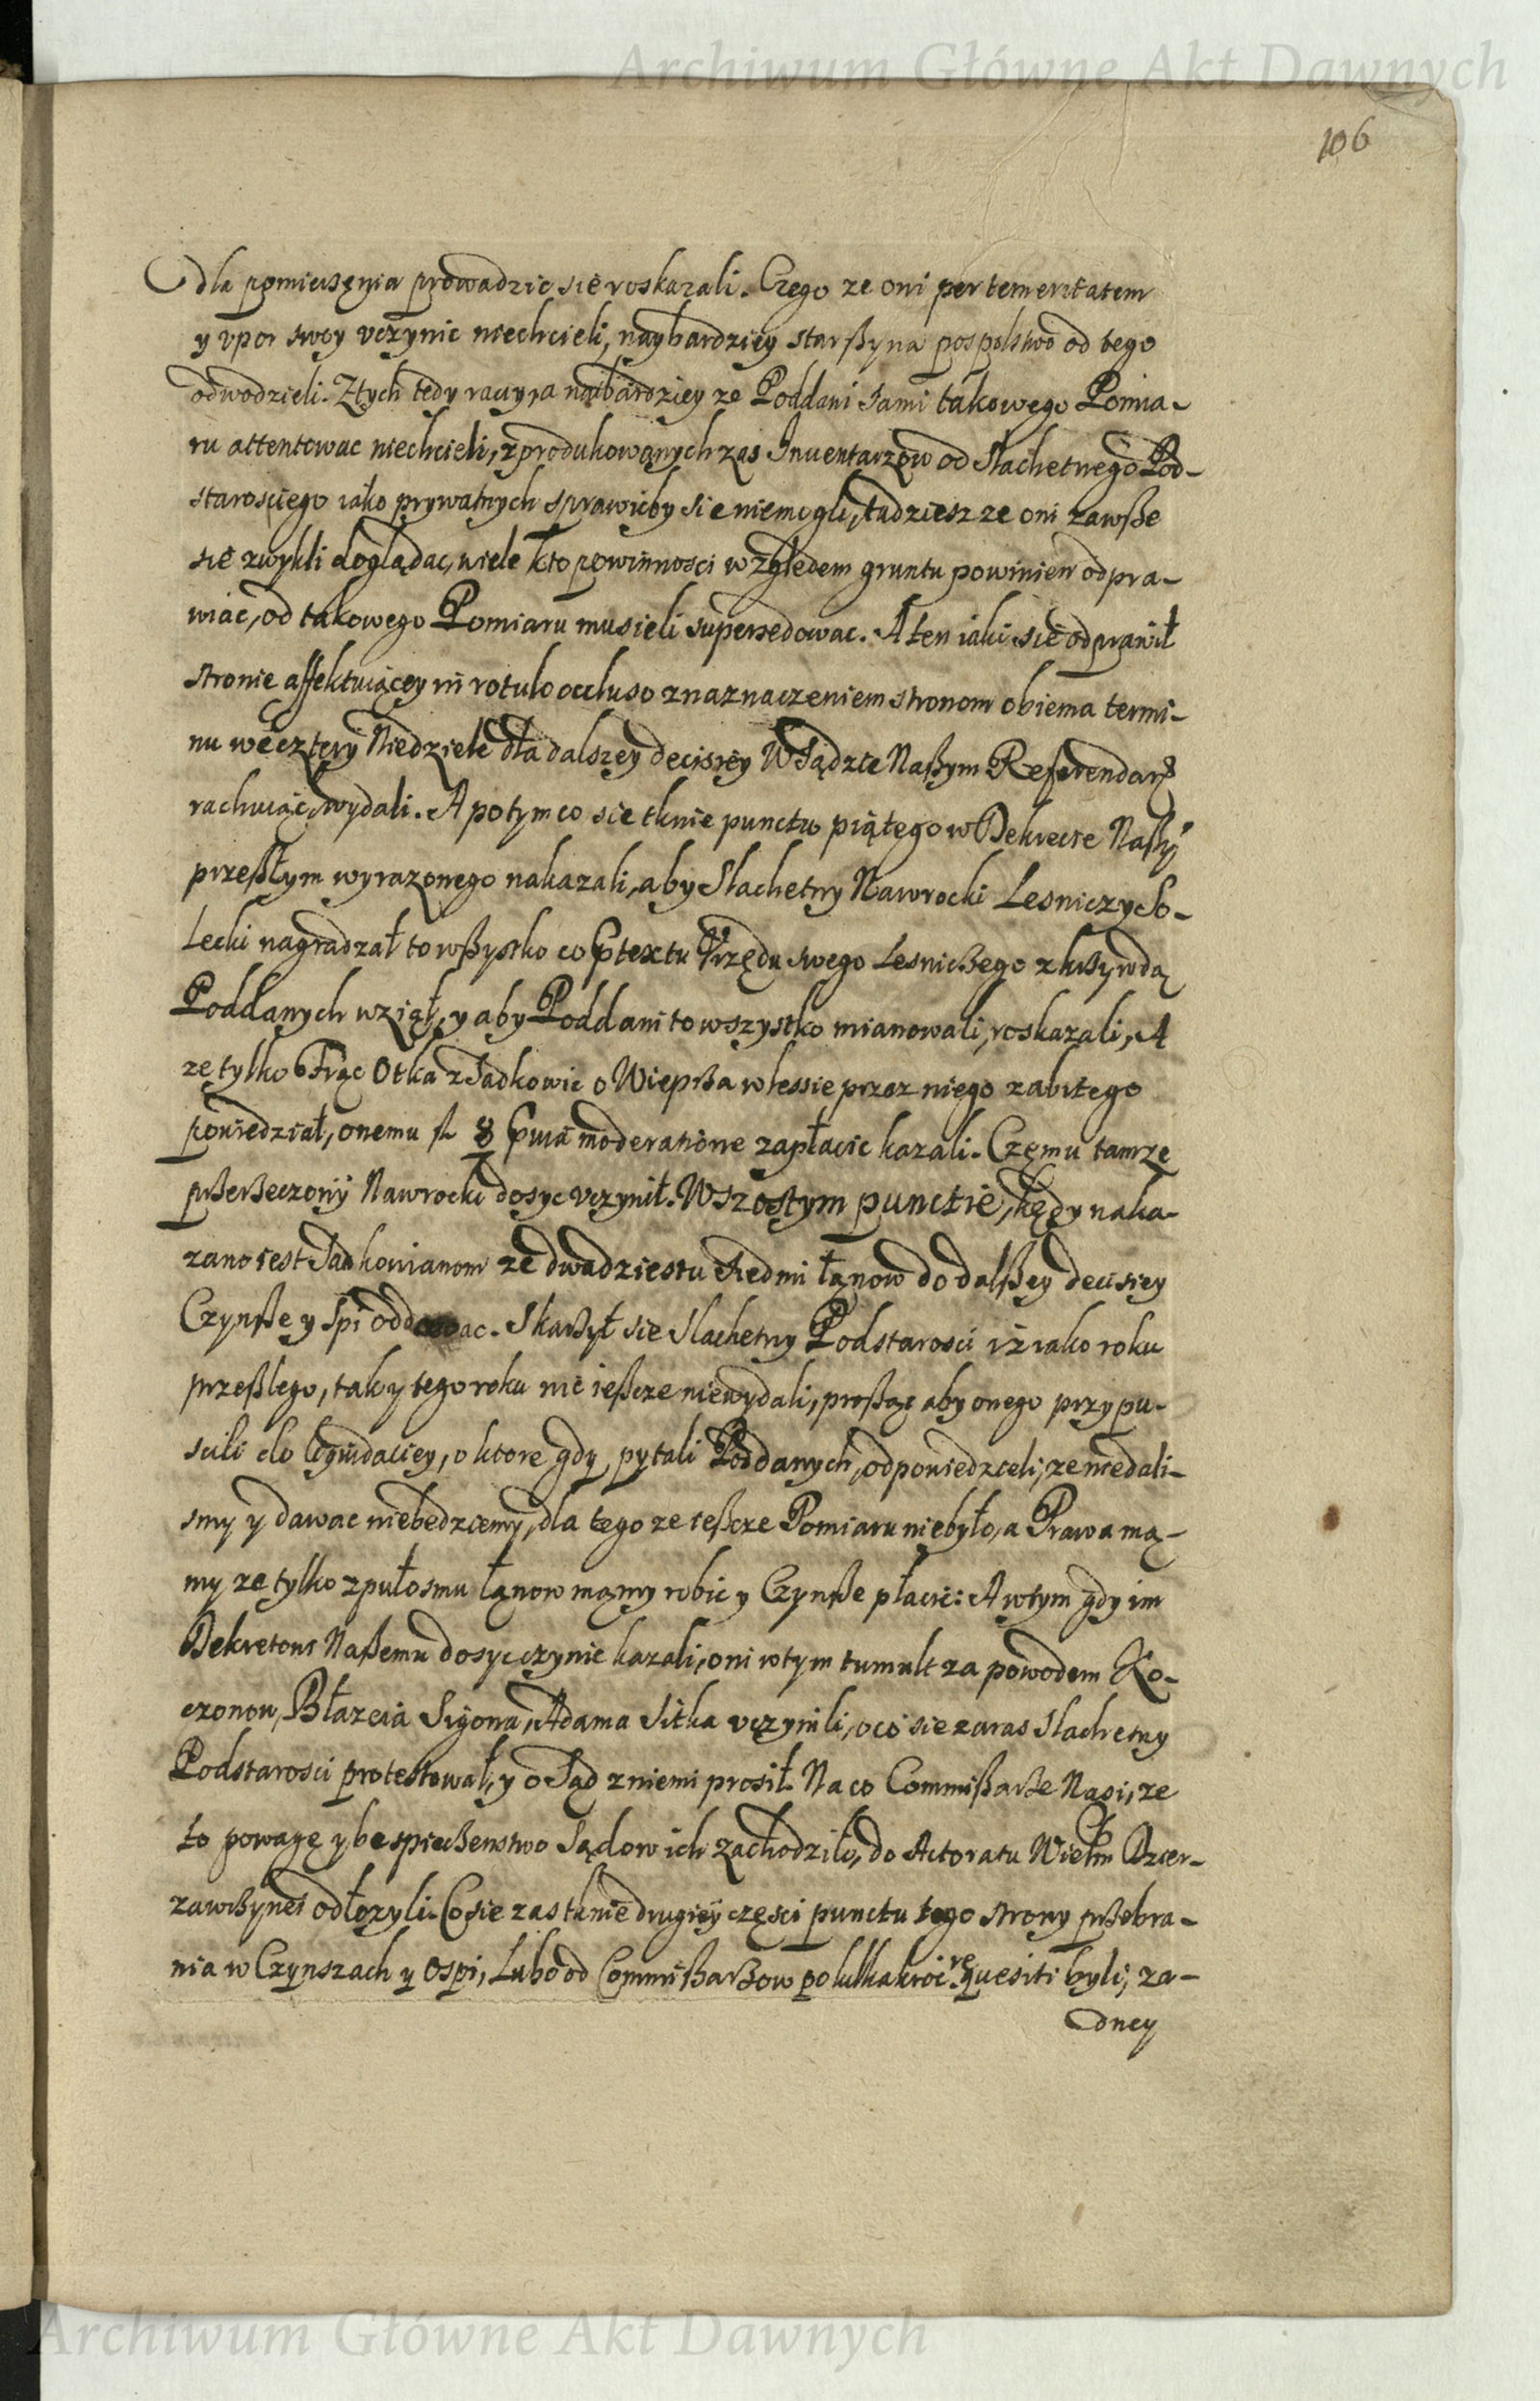 Archiwum Główne Akt Dawnych
106
dla pomierzenia prowadzic się roskazali. Czego ze oni per temeritatem
y vpor swoy vczynic niechcieli, naybardziey starßyna pospolstwo od tego
odwodzieli. Z tych tedy racyi a naibardziey ze Poddani sami takowego Pomia-
ru attentowac niechcieli, z produkowanych zas Inwentarzow od Slachetnego Pod-
starosciego iako prywatnych sprawicby się niemogli, tudziesz ze oni zawße
się zwykli doglądac, wiele kto powinnosci względem gruntu powinien odpra-
wiac, od takowego Pomiaru musieli supersedowac. A ten iaki się odprawił
stronie affektuiącey in rotulo occluso z naznaczeniem stronom obiema termi-
nu we cztery Niedziele dla dalszey decisiey W Sądzie Naßym Referendar
rachuiąc, wydali. A potym co się tknie punctu piątego w Dekrecie Naßy
przeßłym wyrazonego nakazali, aby Slachetny Nawrocki Lesniczy So-
lecki nagradzał to wßystko co ptextu Vrzędu swego Lesniczego z krzywdą
Poddanych wziął, y aby Poddani to wszystko mianowali, roskazali, A
ze tylko Frąc Otka z Sadkowic o Wieprza w lessie przez niego zabitego
powiedział, onemu fl 8 pvia moderatione zapłacic kazali. Czemu tamze
przerzeczony Nawrocki dosyc vczynił. W szostym punctie, kędy naka-
zano iest Sadkowianom ze dwadziestu siedmi łanow do dalßey decisiey
Czynße y Spi oddawac. Skarżył się Slachetny Podstarosci iż iako roku
przeßlego, tak y tego roku nic ießcze niewydali, proßąc aby onego przypu-
scili do liquidaciey, o ktore gdy pytali Poddanych, odpowiedzieli, ze niedali-
smy y dawac niebędziemy, dla tego ze ießcze Pomiaru niebyło, a Prawa ma-
my ze tylko z pułosmu łanow mamy robic y Czynße płacic: A w tym gdy im
Dekretowi Naßemu dosyc czynic kazali, oni w tym tumult za powodem Ko-
czonow, Błazeia Sigona, Adama Sitka vczynili, o co się zaras Slachetny
Podstarosci protestował, y o Sąd z niemi prosił. Na co Commißarze Nasi, ze
to powagę y bespieczenstwo Sądow ich zachodziło, do Actoratu Wielm Dzier-
zawczynei odłozyli. Co się zas tknie drugiey częsci punctu tego strony przebra-
nia w Czynszach y Ospi, Lubo od Commißarzow po kilkakroc requesiti byli, za-
dney
Archiwum Główne Akt Dawnych